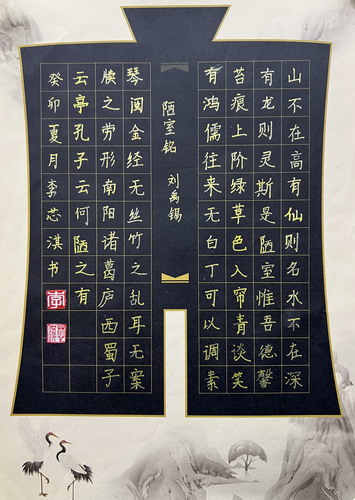 山不在高有仙则名水不在深
有龙则灵斯是陋室惟吾德馨
苔痕上阶绿草色入帘青谈笑
有鸿儒往来无白丁可以调素
陋室铭
刘禹锡
琴阅金经无丝竹之乱耳无案
牍之劳形南阳诸葛庐西蜀子
云亭孔子云何陋之有
癸卯夏月李芯淇书
李